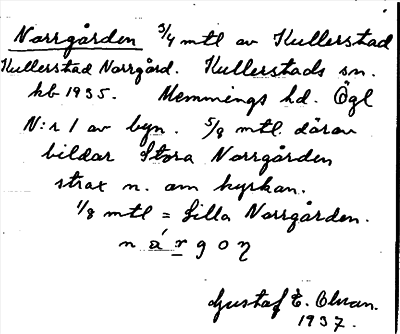 Norrgården 3/4 mtl av Kullerstad
Kullerstad Norrgård. Kullerstads sn.
kb 1935. Memmings hd. Ögl
N:r 1 av byn. 5/8 mtl. därav
bildar Stora Norrgården
strax n. om kyrkan.
1/8 mtl = Lilla Norrgården.
n ǻ r g o ŋ
Gustaf E.
1937.